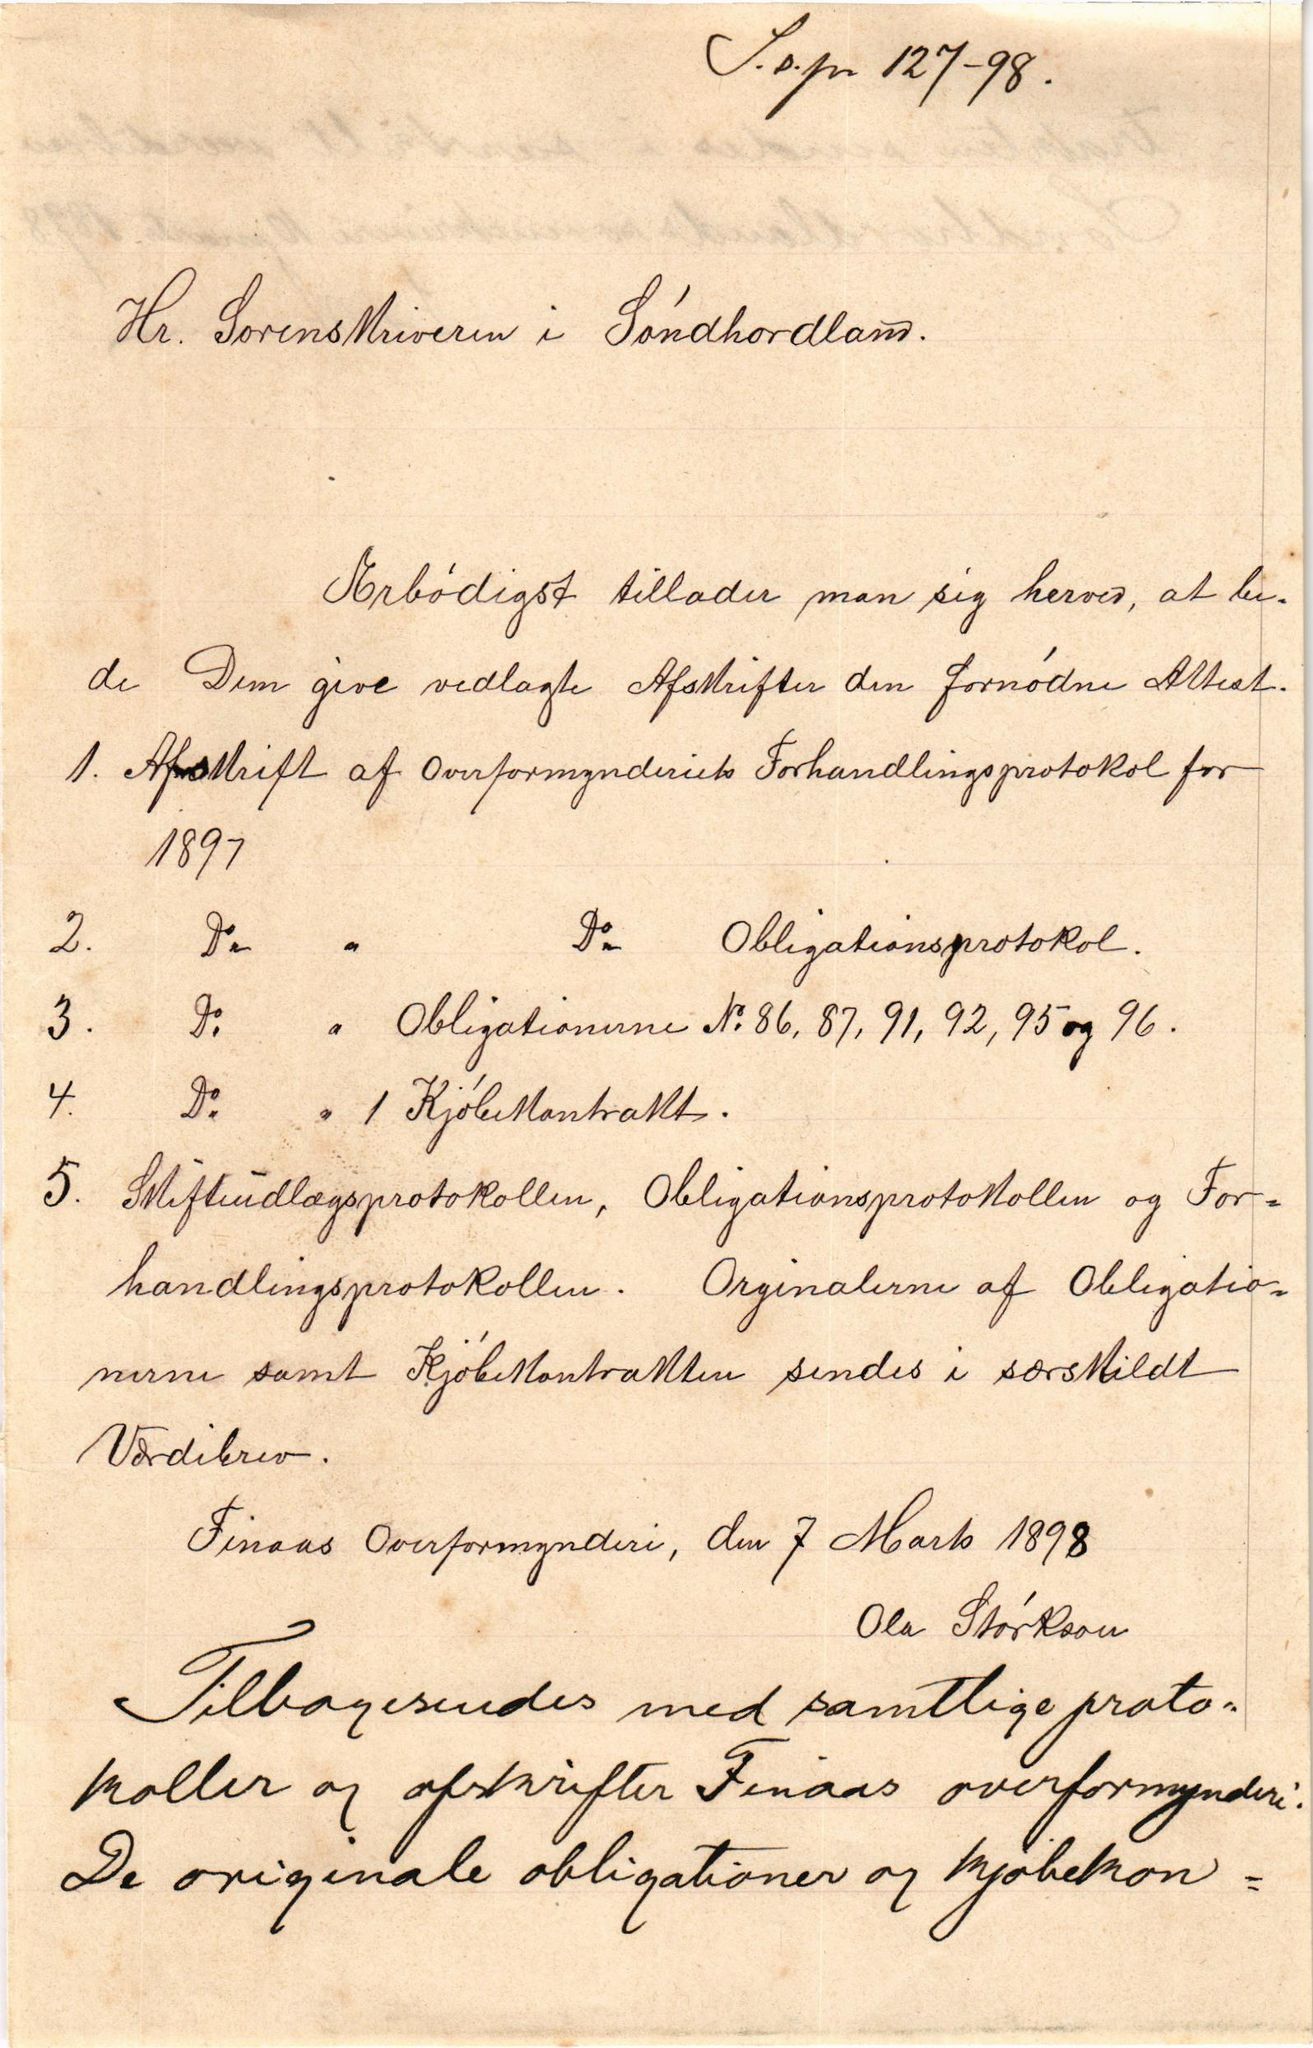 S.s.pr 127-98.
Hr. Sorenskriveren i Sóndhordland.
Ærbódigst tillader man sig herved, at be-
de Dem give vedlagte Afskrifter den fornódne Attest.
1. Afskrift af Overformynderiets Forhandlingsprotokol for
1897
2. Do " Do Obligationsprotokol.
3. Do " Obligationerne No. 86, 87, 91, 92, 95 og 96.
4. Do " 1 Kjóbekontrakt.
5. Skifteudlægsprotokollen, Obligationsprotokollen og For=
handlingsprotokollen. Orginalerne af Obligatio=
nerne samt Kjóbekontrakten sendes i særskildt
Værdibrev.
Finaas Overformynderi, den 7 Marts 1898
Ola Stórkson
Tilbagesendes med samtlige proto=
koller og afskrifter Finaas overformynderi.
De originale obligationer og kjøbekon=